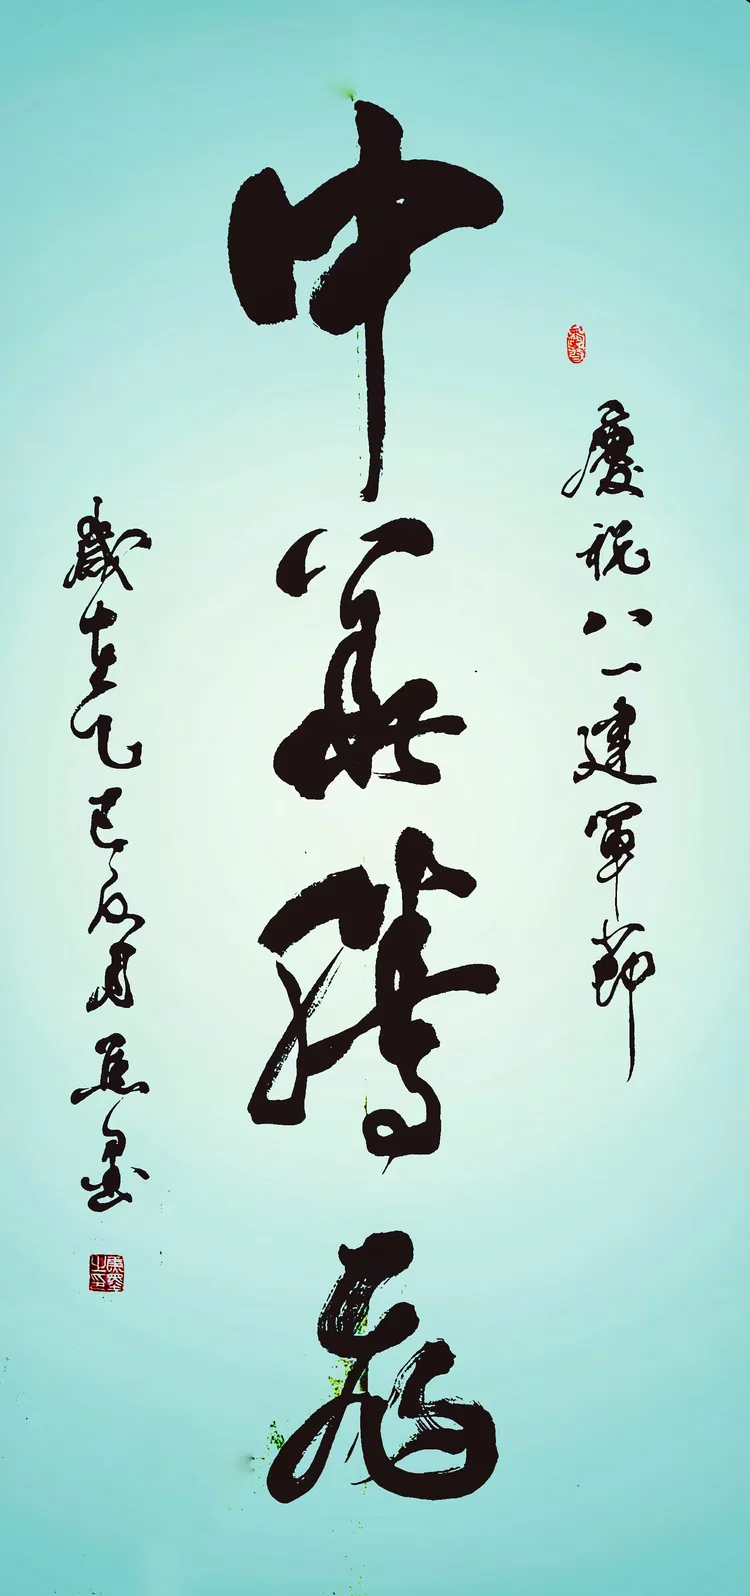 慶祝八一建軍節
中華騰飛
歲在乙巳夏月焦墨